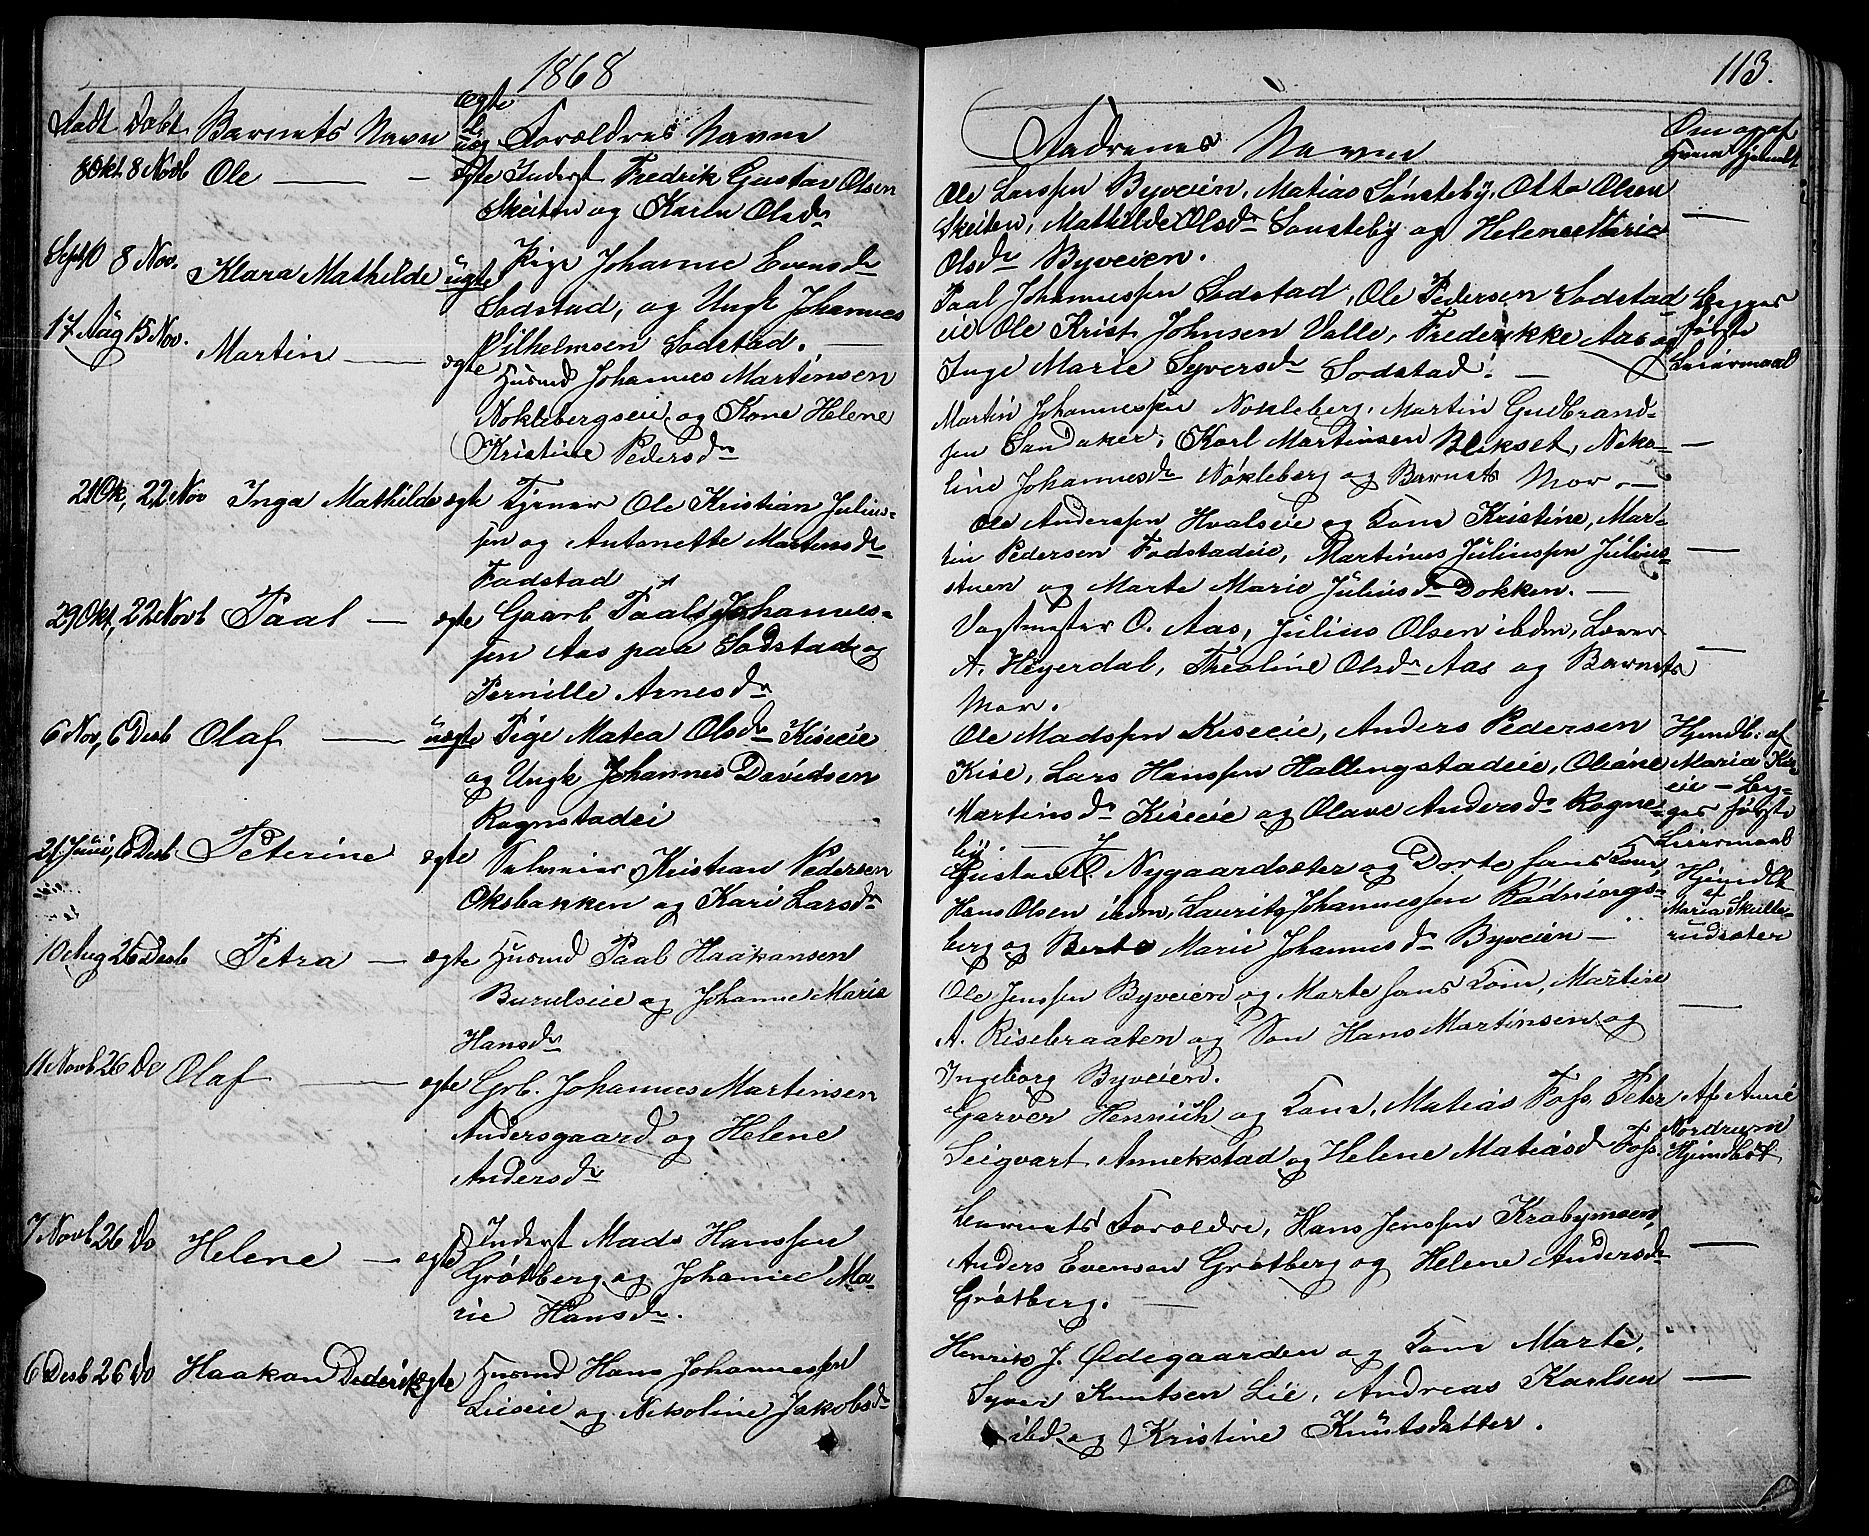 1868
113.
Født Døbt Barnets Navn ægte el. uæg Forældres Navne
Fadrenes Navne
Om og af hvem hjemdbt
8 Okt. 8 Novb Ole — ægte Inderst Fredrik Gustav Olsen
Skeiten og Karen Olsdr
Ole Larssen Byveien, Matias Sønsteby, Otto Olsen
Skeiten, Mathilde Olsdr Sønsteby og Helene Marie
Olsdr Byveien.
—
Sept 10 8 Nov. Klara Mathilde uægte Pige Johanne Evensdr
Sodstad, og Ungk Johannes
Vilhelmsen Sodstad. —
Paal Johannessen Sodstad, Ole Pedersen Sodstad
eie Ole Krist. Johnsen Valle, Frederikke Aas og
Inge Marie Syversdr Sodstad. —
Begges
første
Leiermaal
17 Aug 15 Nov. Martin — ægte Husmd Johannes Martinsen
Noklebergseie og Kone Helene
Kristine Pedersdr
Martin Johannessen Nokleberg, Martin Gudbrand-
sen Sandaker, Karl Martinsen Blikset, Niko-
line Johannesdr Nøkleberg og Barnets Mor. —
—
21 Ok, 22 Nov Inga Mathilde ægte Tjener Ole Kristian Julius-
sen og Antonette Martinsdr
Fodstad
Ole Anderssen Hvalseie og Kone Kristine, Mar-
tin Pedersen Fodstadeie, Martinus Juliussen Julius-
stuen og Marte Marie Juliusdr Dokken. —
—
29 Okt, 22 Novb Paal — ægte Gaarb. Paal Johannes-
sen Aas paa Sodstad og
Pernille Arnesdr
Vagtmester O. Aas, Julius Olsen ibdm, Lærer
A. Heyerdal, Theoline Olsdr Aas og Barnets
Mor.
—
6 Nov, 6 Desb Olaf — uægte Pige Matea Olsdr Kiseeie
og Ungk Johannes Davidsen
Rognstadei
Ole Madssen Kiseeie, Anders Pedersen
Kise, Lars Hanssen Hallingstadeie, Oliane
Martinsdr Kiseeie og Olave Andersdr Rogne-
lij. —
Hjemdb. af
Maria Kise
eie — Beg-
ges første
Leiermaal
21 Juni, 6 Desb Peterine ægte Selveier Kristian Pedersen
Oksbakken og Kari Larsdr
Gustav O. Nygaardsæter og Dorte hans Kone,
Hans Olsen ibdm, Lauritz Johannessen Rødningsberg og Berte Marie Johannesdr Byveien —
Hjemdbt
af
Maria Skulle-
rudsæter
10 Aug 26 Desb Petra — ægte Husmd Paal Haakansen
Burulseie og Johanne Marie
Hansdr
Ole Jenssen Byveien og Marte hans Kone, Martine
A. Risebraaten og Søn Hans Martinsen og
Ingeborg Byveien.
—
11 Novb 26 Do Olaf — ægte Grb. Johannes Martinsen
Andersgaard og Helene
Andersdr
Garver Hennich og Kone, Matias Foss, Peter
Seigvart Annekstad og Helene Matiasd Foss.
Af Anne
Nordrum
Hjemdøbt
7 Novb 26 Do Helene — ægte Inderst Mads Hanssen
Grøtberg og Johanne Ma-
rie Hansdr.
Barnets Foroldre, Hans Jenssen Krabymoen,
Anders Evensen Grøtberg og Helene Andersdr
Grøtberg. —
—
6 Desb 26 Do Haakan Dederik ægte Husmd Hans Johannessen
Lieseie og Nikoline Jakobsdr
Henrik J. Ødegaarden og Kone Marte,
Syver Knutsen Lie, Andreas Karlsen
ibd. og Kristine Knutsdatter.
—